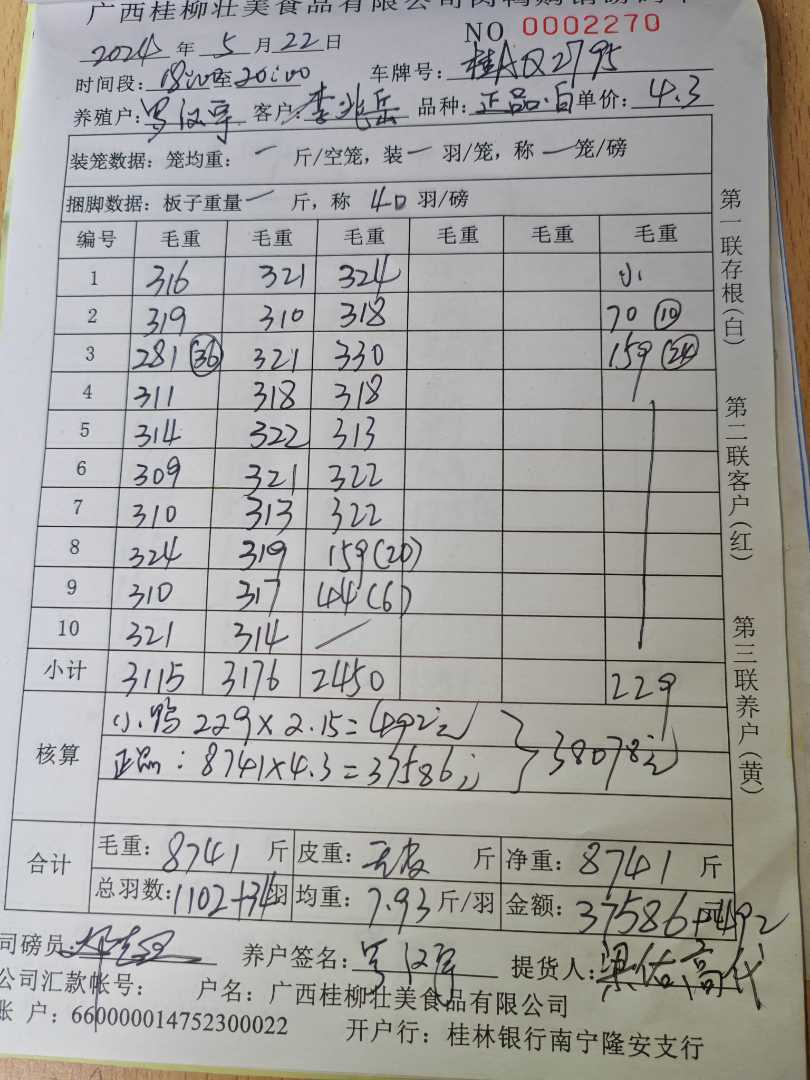 广西桂柳壮美食品有限公司肉鸭购销磅码单
NO 0002270
2024年 5 月 22 日
时间段: 18:00至20:00 车牌号: 桂AQ2795
养殖户: 客户: 李兆岳 品种: 正品·白 单价: 4.3
装笼数据: 笼均重: 一 斤/空笼, 装一 羽/笼, 称 一 笼/磅
捆脚数据: 板子重量 一 斤, 称 40 羽/磅
编号 毛重 毛重 毛重 毛重 毛重 毛重
1 316 321 324 小
2 319 310 318 70 (10)
3 281 (36) 321 330 159 (24)
4 311 318 318
5 314 322 313
6 309 321 322
7 310 313 322
8 324 319 159(20)
9 310 317 44(6)
10 321 314 /
小计 3115 3176 2450 229
核算 小鸭 229×2.15=492元
正品: 8741×4.3=37586元 } 38078元
合计 毛重: 8741 斤 皮重: 无皮 斤 净重: 8741 斤
总羽数: 1102+34羽 均重: 7.93 斤/羽 金额: 37586+492 元
司磅员: 养户签名: 提货人: 梁佑高代
公司汇款帐号: 户名: 广西桂柳壮美食品有限公司
账 户: 660000014752300022 开户行: 桂林银行南宁隆安支行
第一联存根(白)
第二联客户(红)
第三联养户(黄)